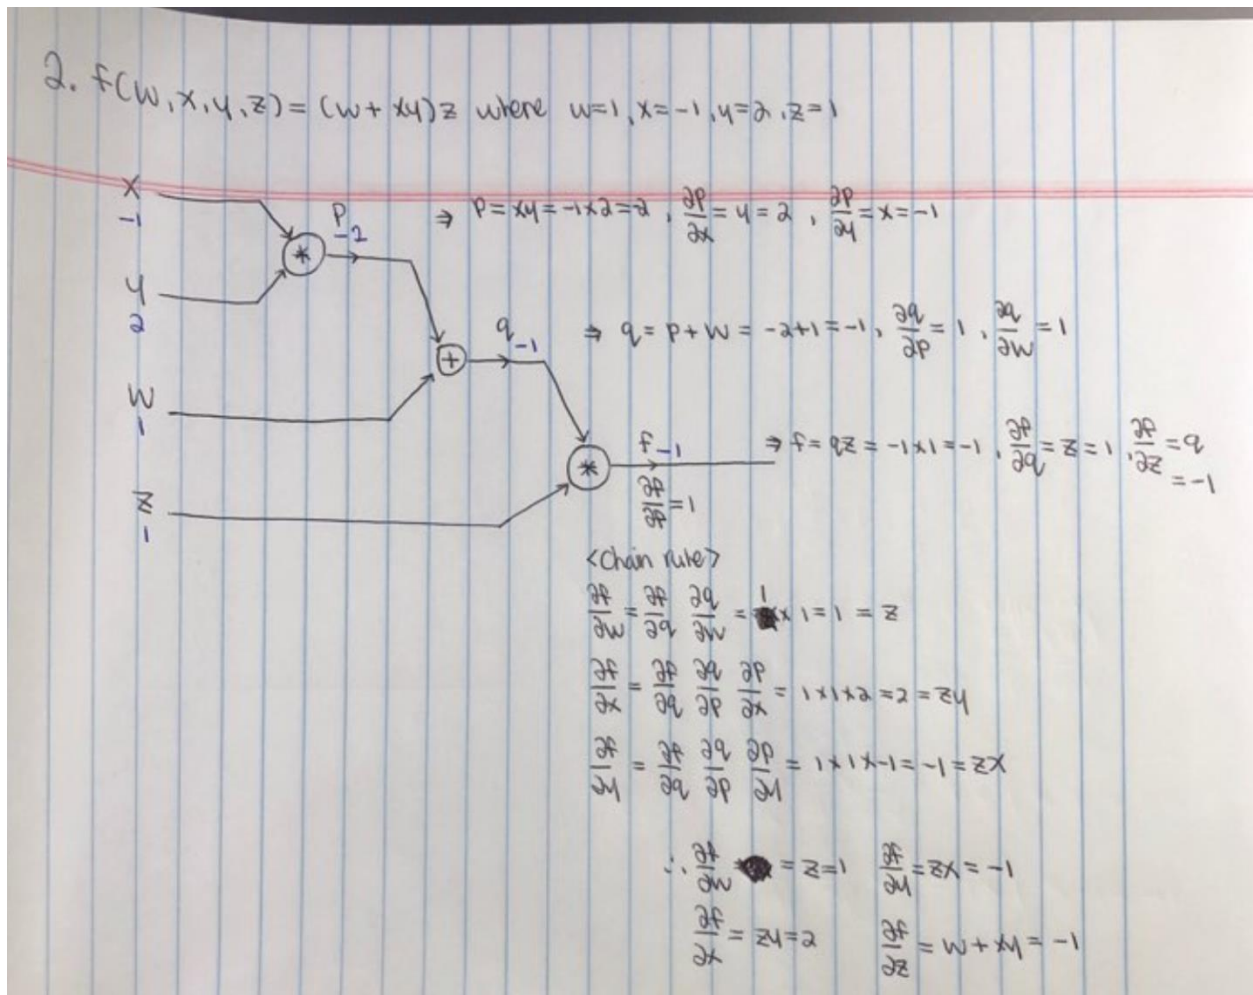 2. f(w,x,y,z) = (w + xy)z where w=1, x=-1, y=2, z=1
x
-1
p
-2
⇒ p = xy = -1×2 = -2, ∂p/∂x = y = 2, ∂p/∂y = x = -1
*
y
2
q
-1
⇒ q = p + w = -2+1 = -1, ∂q/∂p = 1, ∂q/∂w = 1
+
w
1
f
-1
⇒ f = qz = -1×1 = -1, ∂f/∂q = z = 1, ∂f/∂z = q
= -1
*
z
1
∂f/∂f = 1
<Chain rule>
∂f/∂w = ∂f/∂q ∂q/∂w = 1 × 1 = 1 = z
∂f/∂x = ∂f/∂q ∂q/∂p ∂p/∂x = 1×1×2 = 2 = zy
∂f/∂y = ∂f/∂q ∂q/∂p ∂p/∂y = 1×1×-1 = -1 = zx
∴ ∂f/∂w = z = 1 ∂f/∂y = zx = -1
∂f/∂x = zy = 2 ∂f/∂z = w + xy = -1